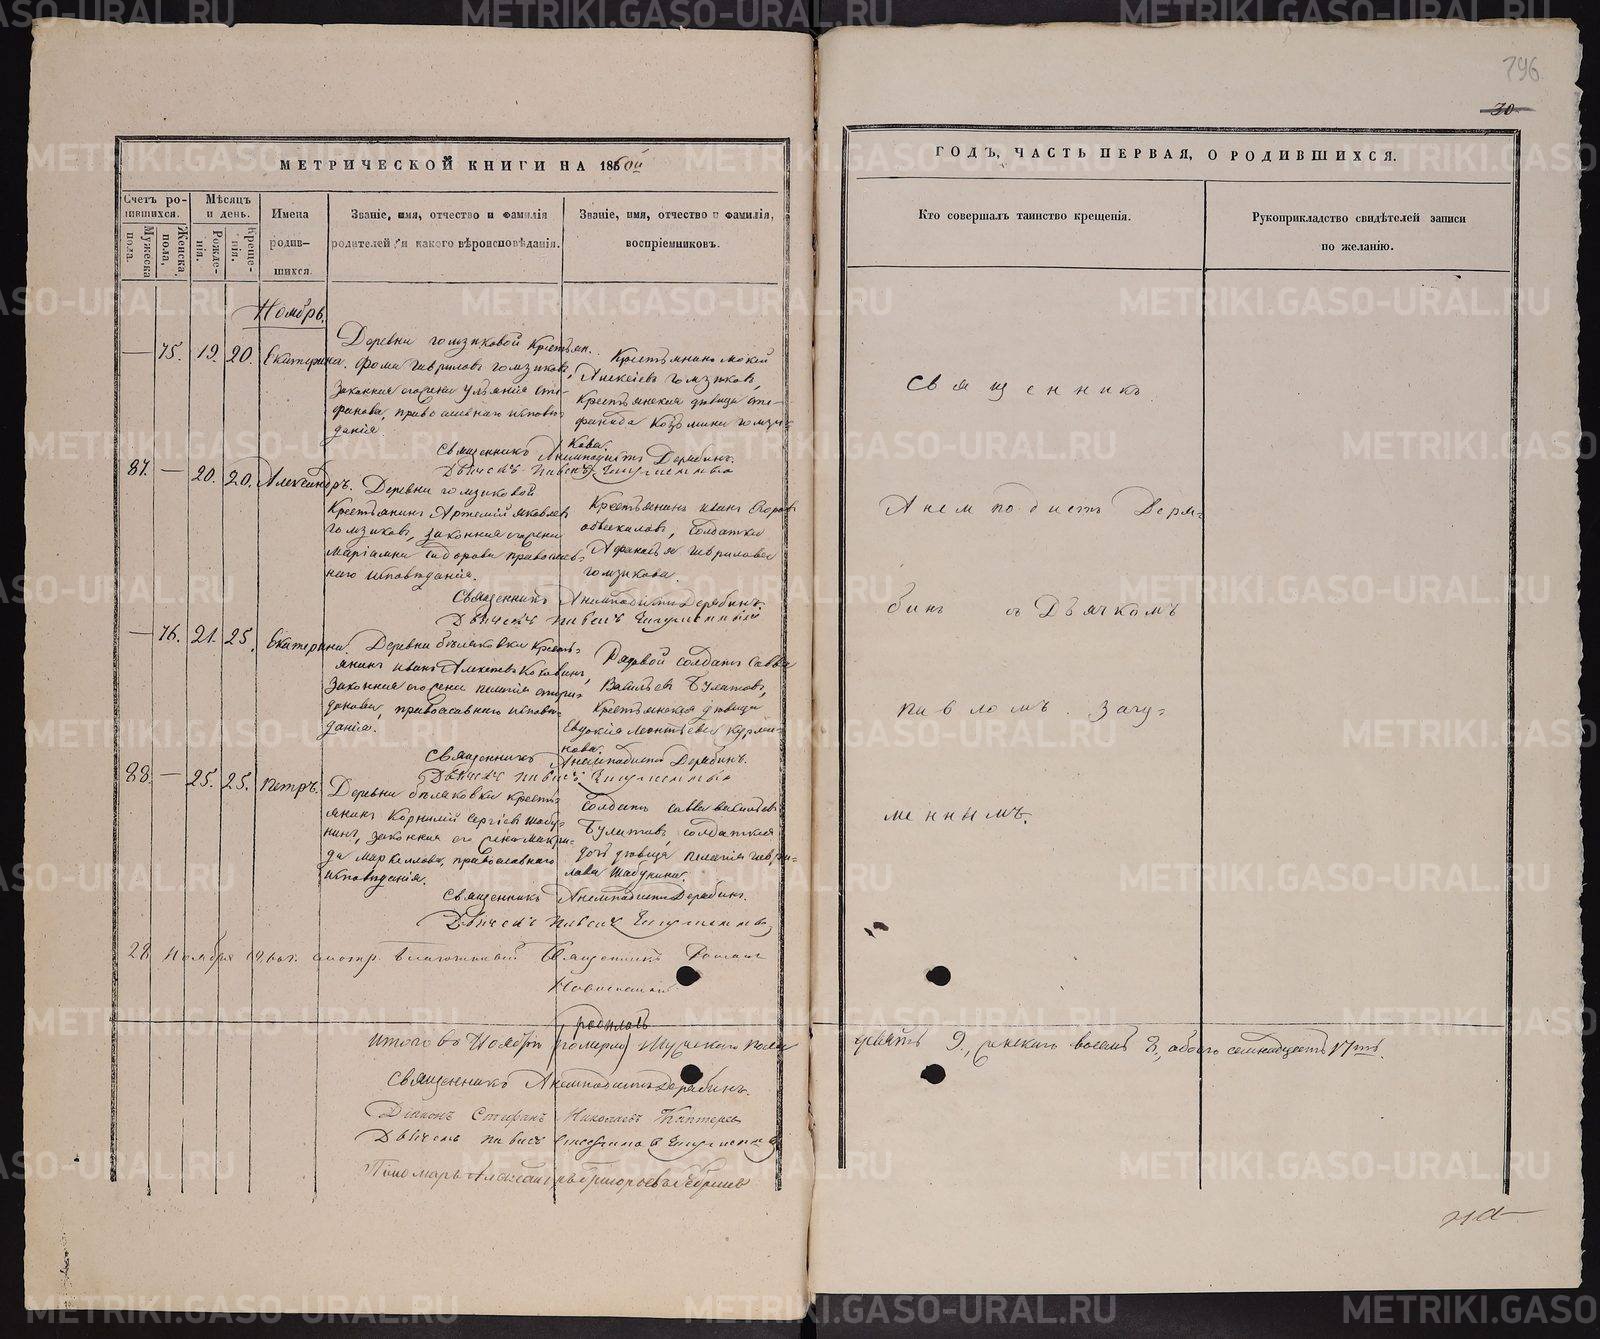 796
30
МЕТРИЧЕСКОЙ КНИГИ НА 1860й
ГОДЪ, ЧАСТЬ ПЕРВАЯ, О РОДИВШИХСЯ.
Счетъ ро-
дившихся.
Мужеска
пола.
Женска
пола.
Мѣсяцъ
и день.
Рожде-
нія.
Креще-
нія.
Имена
родив-
шихся.
Званіе, имя, отчество и фамилія
родителей, и какого вѣроисповѣданія.
Званіе, имя, отчество и фамилія,
воспріемниковъ.
Кто совершалъ таинство крещенія.
Рукоприкладство свидѣтелей записи
по желанію.
Ноябрь.
— 75. 19. 20. Екатерина.
Деревни Гомзиковой Крестьян.
Фома Гавриловъ Гомзиковъ,
законная его жена Ульянія Сте-
фанова, православнаго исповѣ-
данія.
Крестьянинъ Мокей
Алексѣевъ Гомзиковъ,
Крестьянская дѣвица Сте-
фанида Козьмина Гомзи-
кова.
Священникъ Анемподистъ Дерябинъ.
Дьячекъ Павелъ
87. — 20. 20. Александръ.
Деревни Гомзиковой
Крестьянинъ Артемій Яковлевъ
Гомзиковъ, законная его жена
Маріамна Сидорова православ-
наго исповѣданія.
Крестьянинъ Иванъ Егоровъ
солдатка
Афанасья Гаврилова
Гомзикова.
Священникъ Анемподистъ Дерябинъ.
Дьячекъ Павелъ
— 76. 21. 25. Екатерина.
Деревни Бѣляковки Кресть-
янинъ Иванъ Алексѣевъ Коковинъ,
законная его жена Пелагія Спири-
донова, православнаго исповѣ-
данія.
Рядовой солдатъ Савва
Васильевъ Булатовъ,
Крестьянская дѣвица
Евдокія Леонтьева Курми-
кова.
Священникъ Анемподистъ Дерябинъ.
Дьячекъ Павелъ
88. — 25. 25. Петръ.
Деревни Бѣляковки кресть-
янинъ Корнилій Сергіевъ Шабу-
нинъ, законная его жена Макри-
да Маркеллова, православнаго
исповѣданія.
Солдатъ Савва Васильевъ
Булатовъ, солдатская
дочь дѣвица Пелагія Гаври-
лова Шабунина.
Священникъ Анемподистъ Дерябинъ.
Дьячекъ Павелъ
Священникъ
Анемподистъ Деря-
бинъ съ Дьячкомъ
Павломъ Загу-
меннымъ.
28 Ноября смотр. Благочинный Священникъ
родилось
Итого въ Ноябрѣ (померло) Мужеска пола
девять 9., женскаго восемь 8., обоего семнадцать 17ть.
Священникъ Анемподистъ Дерябинъ.
Діаконъ Стефанъ Николаевъ
Дьячекъ Павелъ
Пономарь